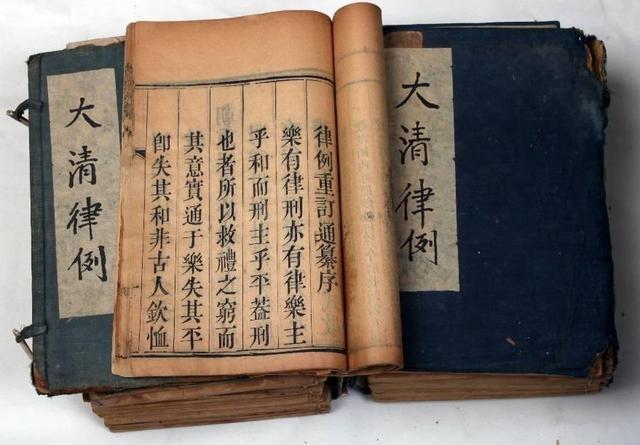 大清律例
律例重訂通纂序
樂有律刑亦有律樂主
乎和而刑主乎平蓋刑
也者所以救禮之窮而
其意實通于樂失其平
卽失其和非古人欽恤
大清律例